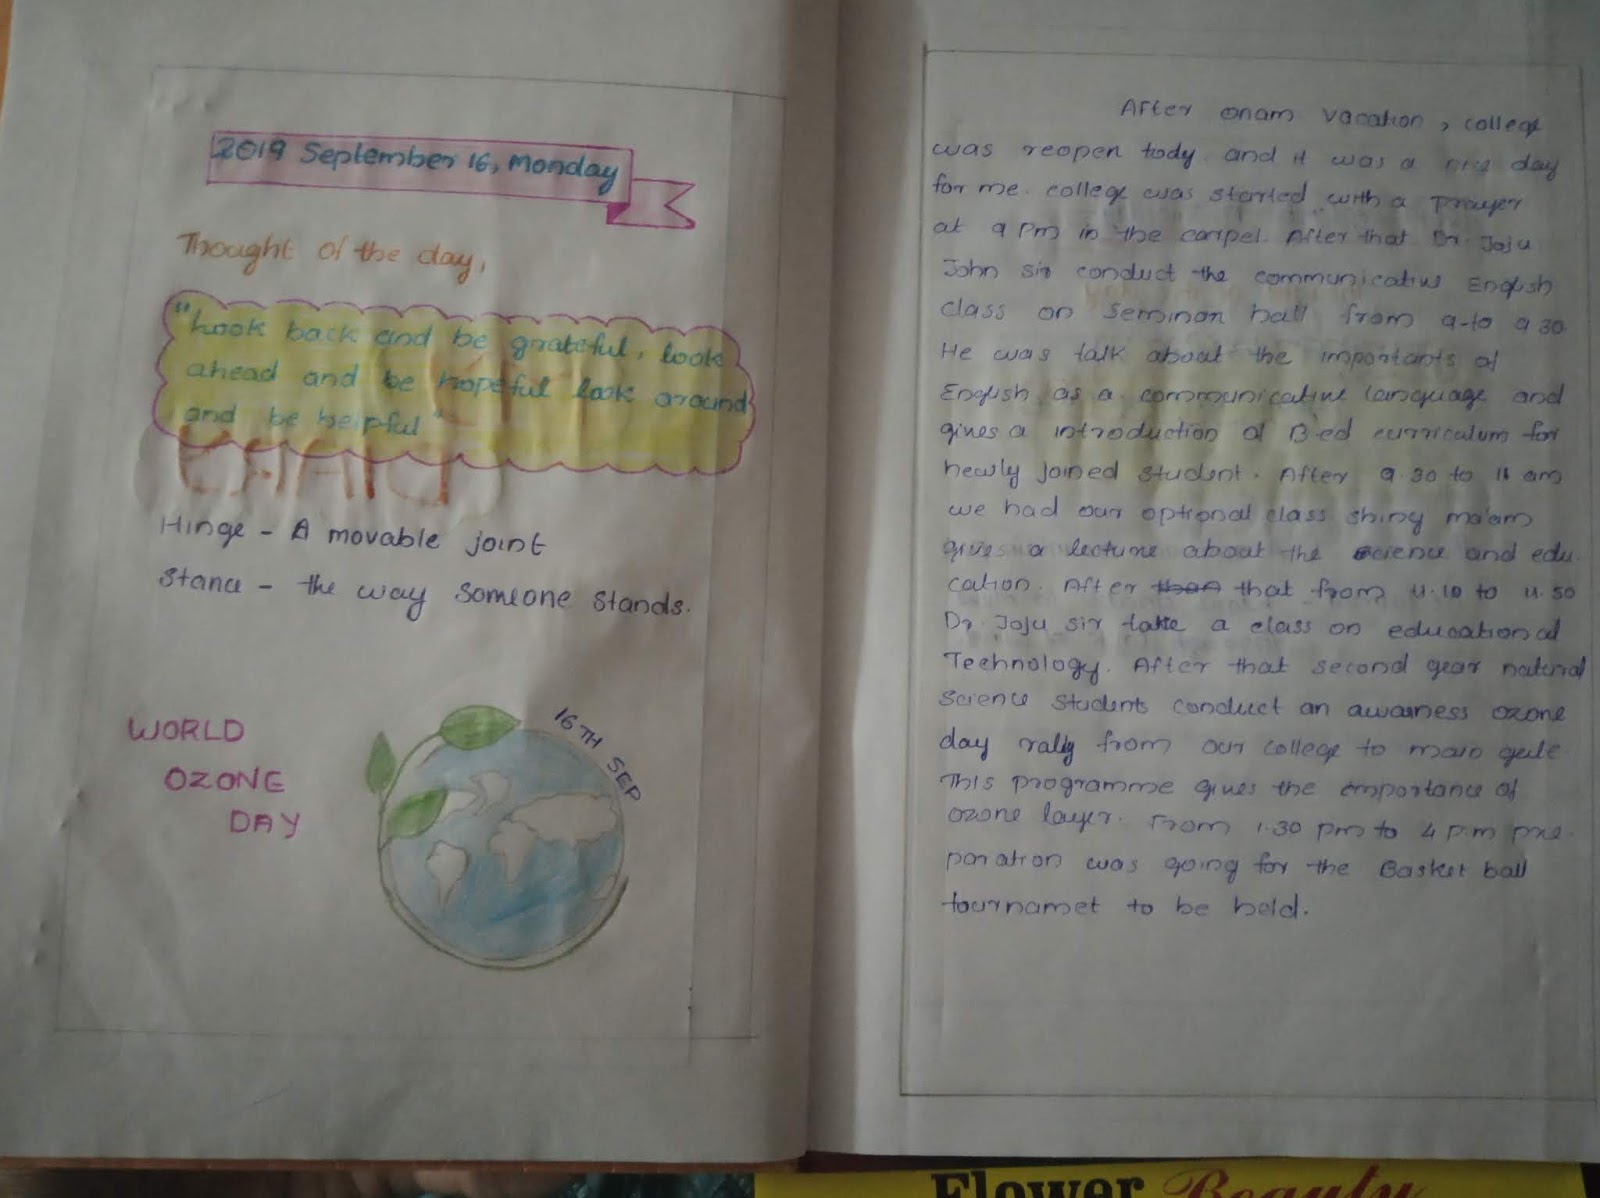 2019 September 16, Monday
Thought of the day,
"Look back and be grateful, look
ahead and be hopeful look around
and be helpful"
Hinge - A movable joint
Stance - the way someone stands.
WORLD
OZONE
DAY
16TH SEP
After onam vacation, college
was reopen tody. and it was a nice day
for me. college was started with a prayer
at 9 Pm in the carpel. After that Dr. Joju
John sir conduct the communicative English
class on Seminar hall from 9-to 9 30.
He was talk about the importants of
English as a communicative language and
gives a introduction of B-ed curriculum for
newly joined student. After 9.30 to 11 am
we had our optional class shiny ma'am
gives a lecture about the science and edu.
cation. After that from 11.10 to 11.50
Dr. Joju sir take a class on educational
Technology. After that second year natural
Science Students conduct an awarness ozone
day rally from our college to main gate.
This programme gives the importance of
ozone layer. From 1.30 pm to 4 p.m pre
paration was going for the Basket ball
tournamet to be held.
Flower Beauty